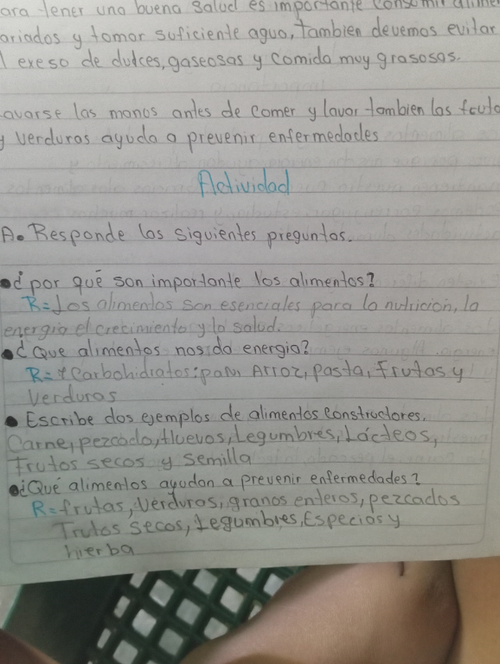 ara tener una buena salud es importante consumir alimen
ariados y tomar suficiente agua, tambien devemos evitar
l exeso de dulces, gaseosas y comida muy grasosas.
avarse las manos antes de comer y lavar tambien las fruta
y verduras ayuda a prevenir enfermedades
Actividad
A. Responde las siguientes preguntas.
•¿por qué son importante los alimentos?
R= Los alimentos son esenciales para la nutrición, la
energia el crecimiento y la salud.
•¿Que alimentos nos da energia?
R= Carbohidratos: pan, Arroz, pasta, Frutas y
verduras
• Escribe dos ejemplos de alimentos constructores.
Carne, pezcado, Huevos, Legumbres, Lácteos,
Frutos secos y semilla
•¿Qué alimentos ayudan a prevenir enfermedades?
R= frutas, verduras, granos enteros, pezcados
Frutos secos, Legumbres, Especias y
hierba